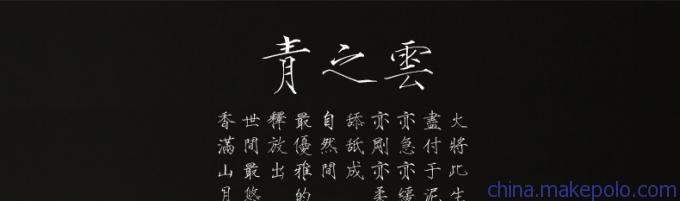 青之雲
火將此生
盡付于泥
亦急亦緩
亦剛亦柔
舔舐成
自然間
最優雅的
釋放出
世間最悠
香滿山月
china.makepolo.com